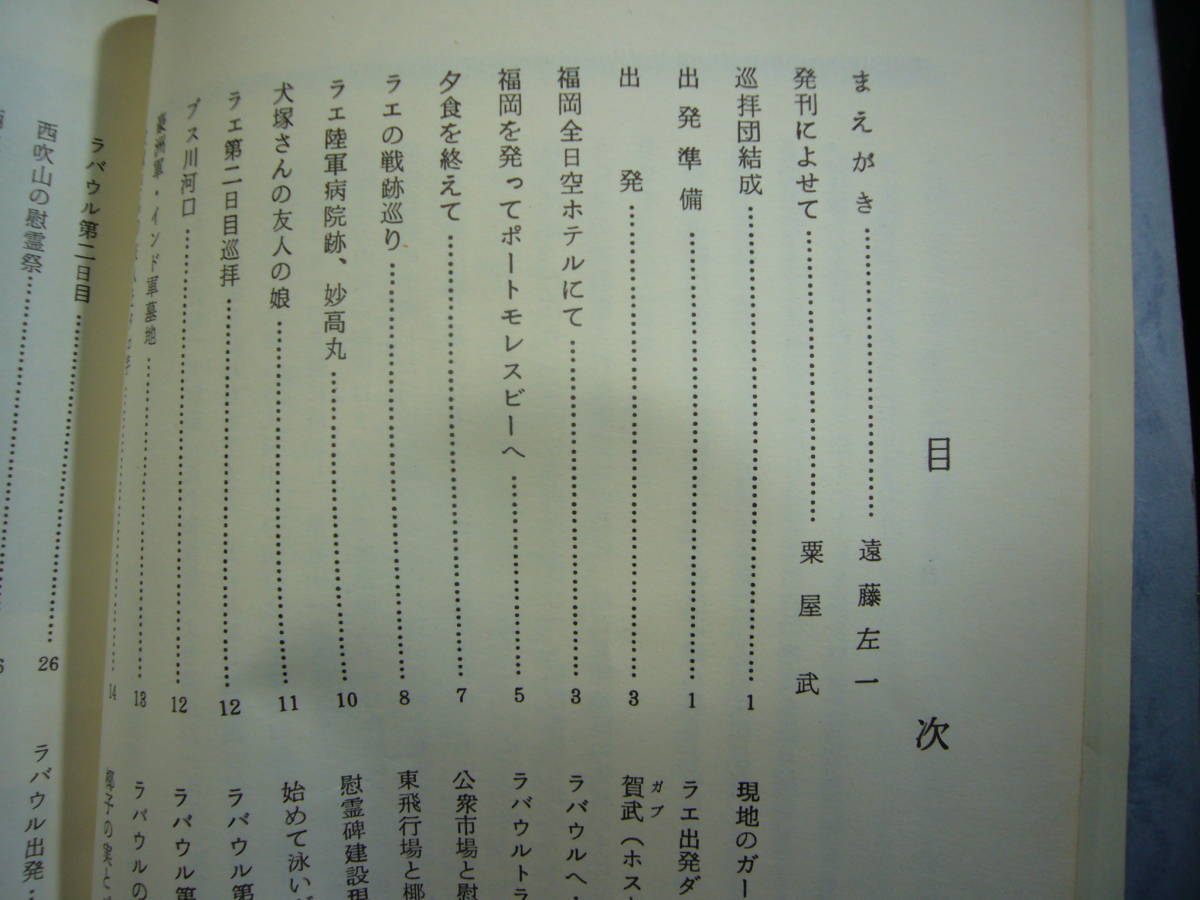 目次
まえがき……………………遠藤左一
発刊によせて……………………粟屋武
巡拝団結成……………………1
出発準備……………………1
出発……………………3
福岡全日空ホテルにて……………………3
福岡を発ってポートモレスビーへ……………………5
夕食を終えて……………………7
ラエの戦跡巡り……………………8
ラエ陸軍病院跡、妙高丸……………………10
犬塚さんの友人の娘……………………11
ラエ第二日目巡拝……………………12
ブス川河口……………………12
豪洲軍・インド軍墓地……………………13
……………………14
現地のガー
ラエ出発ダ
賀武（ホス
ガブ
ラバウルへ・
ラバウルトラ
公衆市場と慰
東飛行場と椰
慰霊碑建設現
始めて泳い
ラバウル第
ラバウル第
ラバウルの
椰子の実と
ラバウル第二日目
西吹山の慰霊祭……………………26
ラバウル出発・